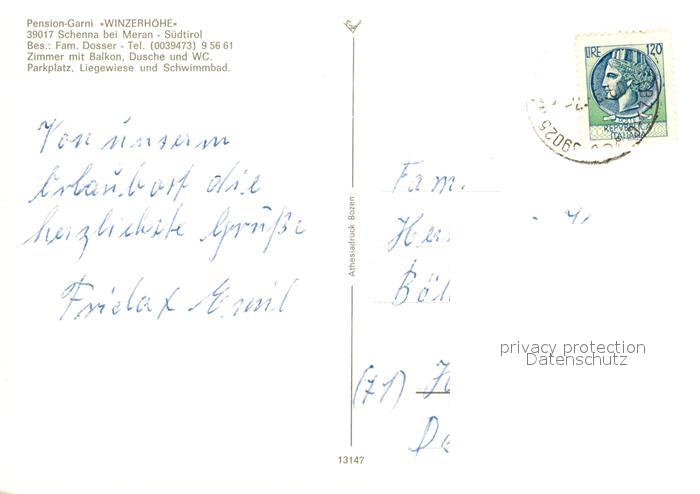 Pension-Garni »WINZERHÖHE«
39017 Schenna bei Meran - Südtirol
Bes.: Fam. Dosser - Tel. (0039473) 9 56 61
Zimmer mit Balkon, Dusche und WC.
Parkplatz, Liegewiese und Schwimmbad.
LIRE 120
REPVBBLICA
ITALIANA
39025
Von unserm
Urlaubort die
herzlichste Grüße
Frieda + Emil
Athesiadruck Bozen
Fam.
(71)
privacy protection
Datenschutz
13147